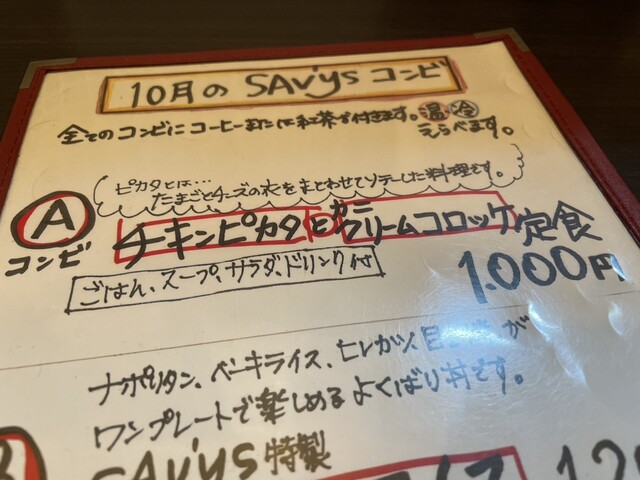 10月の SAV'ys コンビ
全てのコンビにコーヒーまたは紅茶が付きます。温・冷
えらべます。
ピカタとは…
たまごとチーズの衣をまとわせてソテーした料理です。
A
コンビ
チキンピカタとカニクリームコロッケ定食
ごはん、スープ、サラダ、ドリンク付
1.000円
ナポリタン、ベーキライス、ヒレカツ、目が
ワンプレートで楽しめるよくばり丼です。
SAV'ys 特製